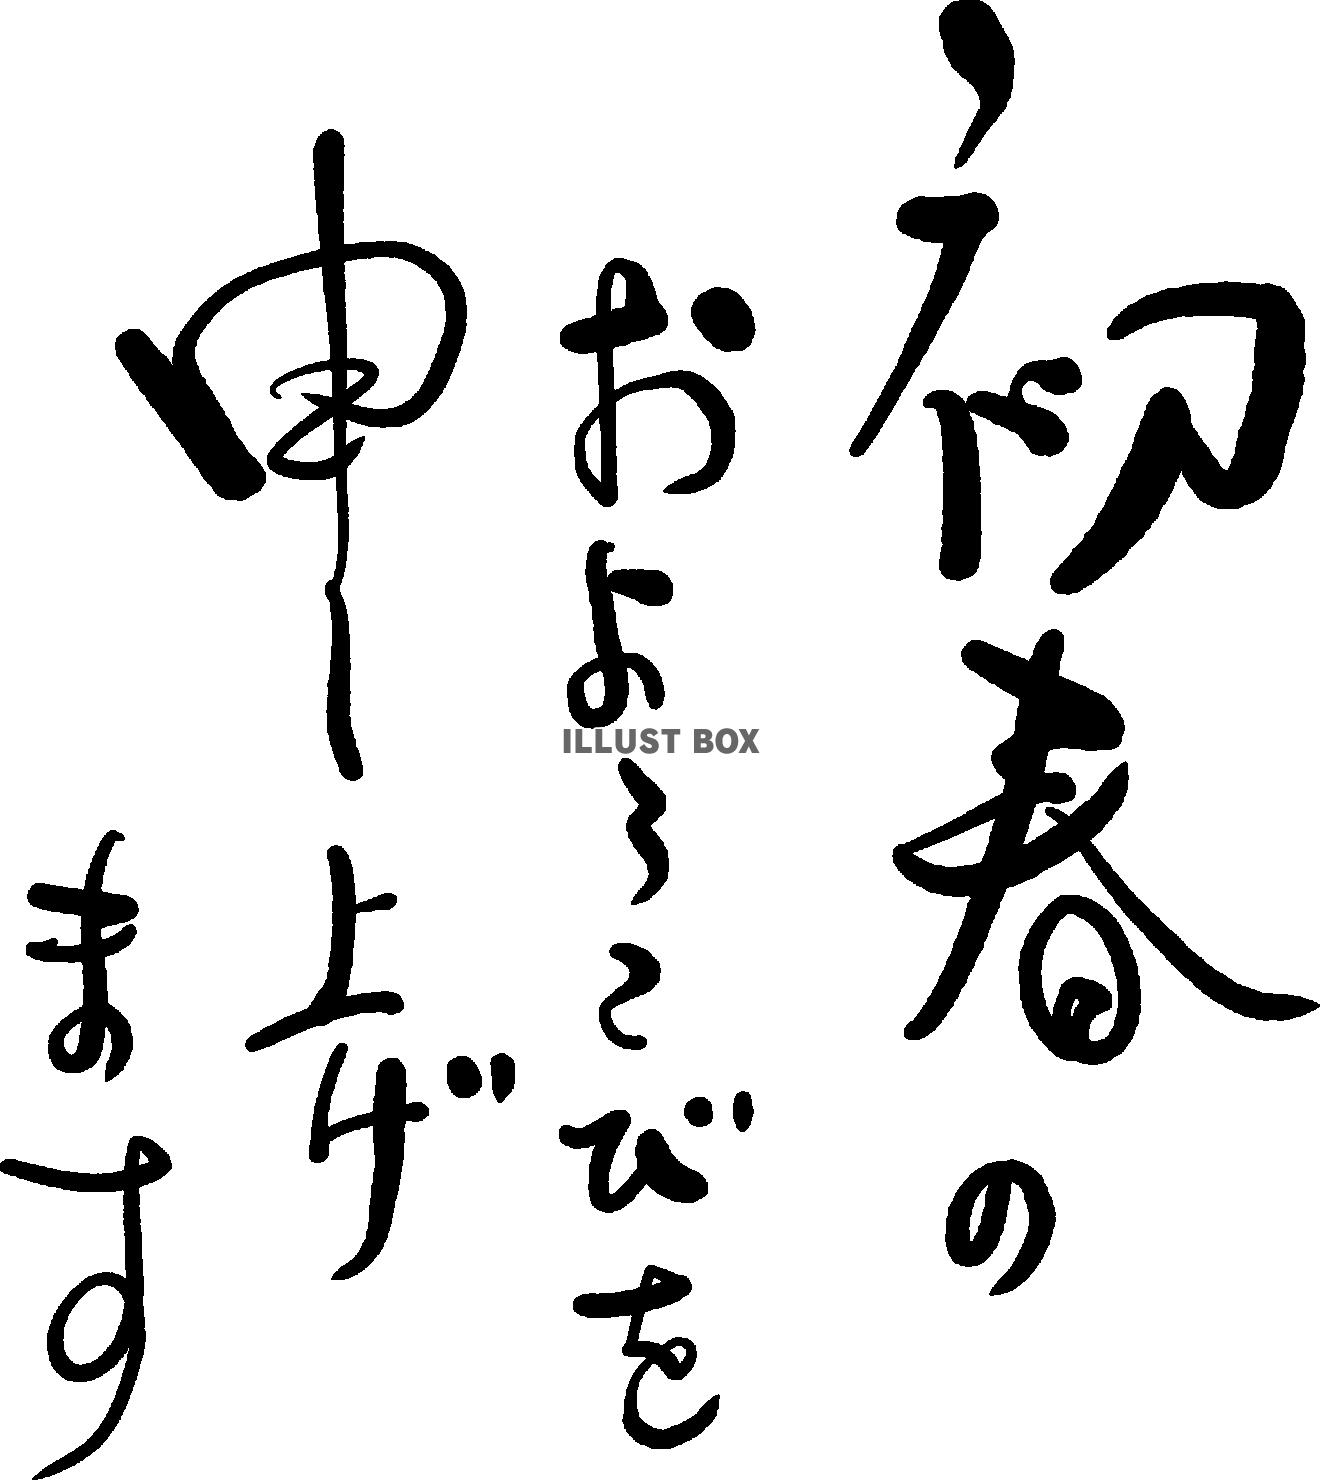 初春の
およろこびを
申し上げ
ます
ILLUST BOX